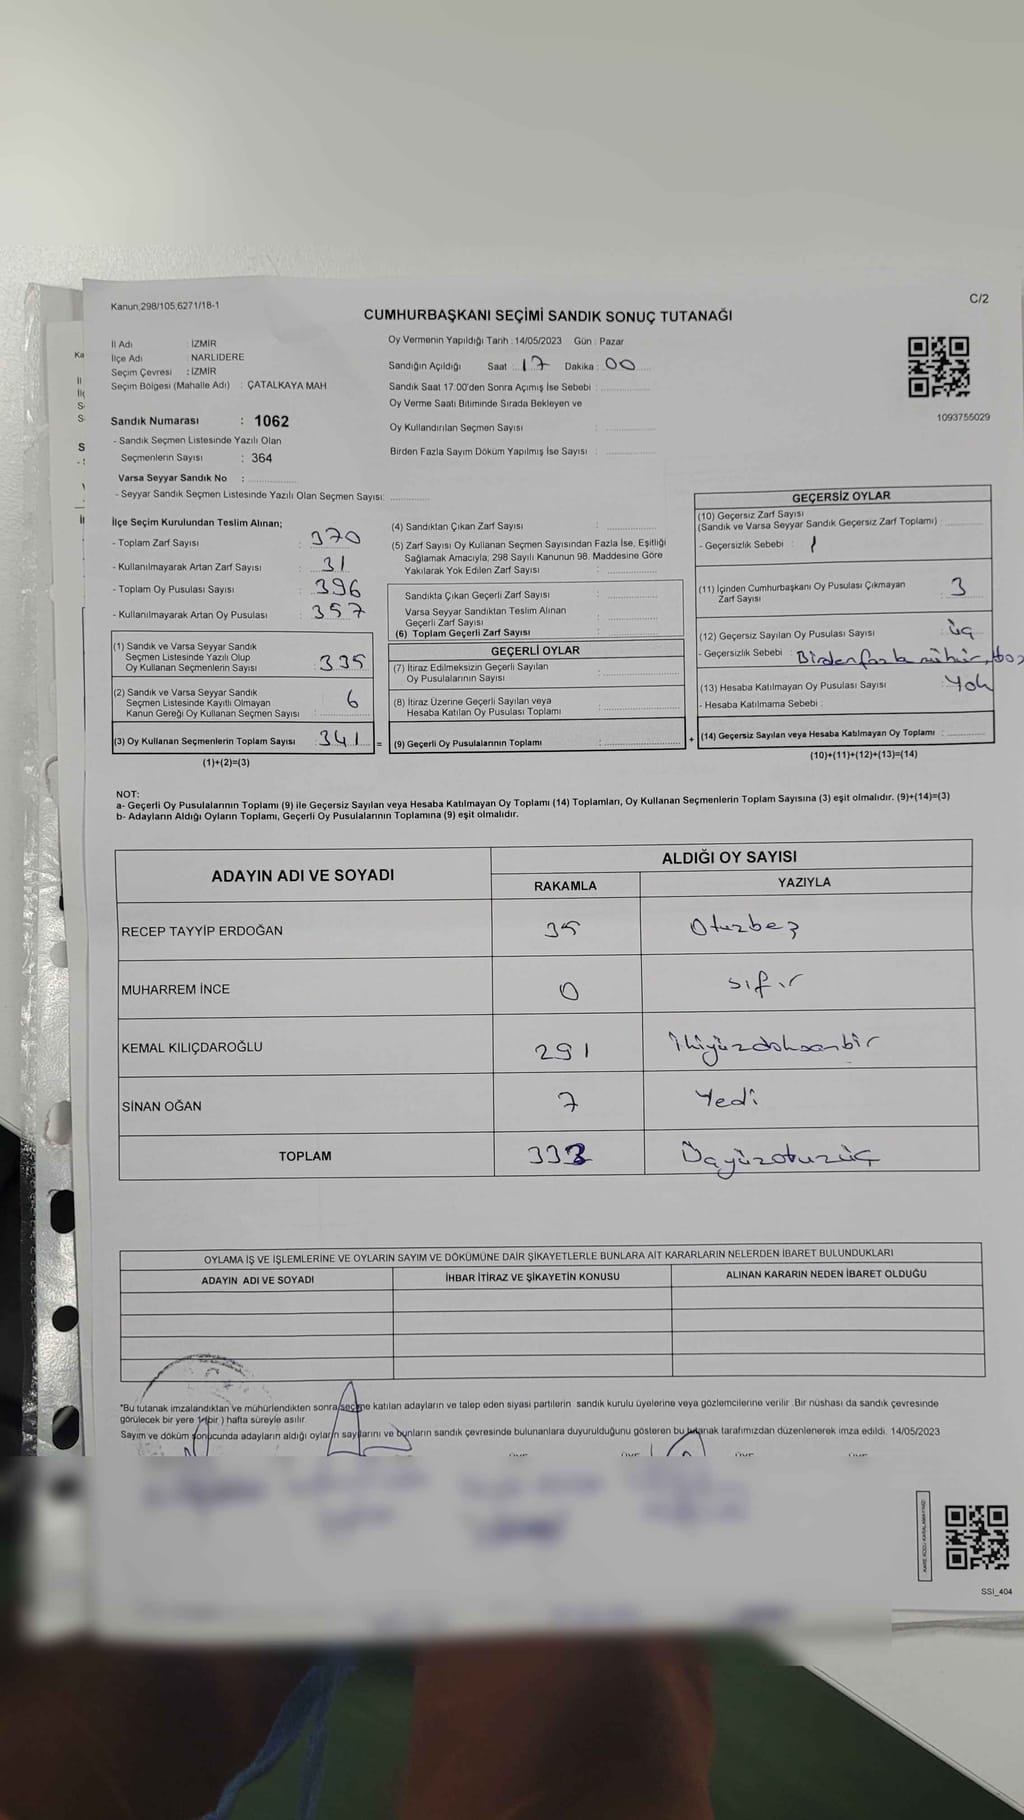 Kanun,298/105,6271/18-1
C/2
CUMHURBAŞKANI SEÇİMİ SANDIK SONUÇ TUTANAĞI
İl Adı : İZMİR
İlçe Adı : NARLIDERE
Seçim Çevresi : İZMİR
Seçim Bölgesi (Mahalle Adı) : ÇATALKAYA MAH
Sandık Numarası : 1062
- Sandık Seçmen Listesinde Yazılı Olan
Seçmenlerin Sayısı : 364
Varsa Seyyar Sandık No :
- Seyyar Sandık Seçmen Listesinde Yazılı Olan Seçmen Sayısı:
Oy Vermenin Yapıldığı Tarih : 14/05/2023 Gün : Pazar
Sandığın Açıldığı Saat : 17 Dakika : 00
Sandık Saat 17:00'den Sonra Açımış İse Sebebi :
Oy Verme Saati Bitiminde Sırada Bekleyen ve
Oy Kullandırılan Seçmen Sayısı :
Birden Fazla Sayım Döküm Yapılmış İse Sayısı :
1093755029
İlçe Seçim Kurulundan Teslim Alınan;
- Toplam Zarf Sayısı : 370
- Kullanılmayarak Artan Zarf Sayısı : 31
- Toplam Oy Pusulası Sayısı : 396
- Kullanılmayarak Artan Oy Pusulası : 357
(1) Sandık ve Varsa Seyyar Sandık
Seçmen Listesinde Yazılı Olup
Oy Kullanan Seçmenlerin Sayısı : 335
(2) Sandık ve Varsa Seyyar Sandık
Seçmen Listesinde Kayıtlı Olmayan
Kanun Gereği Oy Kullanan Seçmen Sayısı : 6
(3) Oy Kullanan Seçmenlerin Toplam Sayısı : 341 =
(1)+(2)=(3)
(4) Sandıktan Çıkan Zarf Sayısı :
(5) Zarf Sayısı Oy Kullanan Seçmen Sayısından Fazla İse, Eşitliği
Sağlamak Amacıyla, 298 Sayılı Kanunun 98. Maddesine Göre
Yakılarak Yok Edilen Zarf Sayısı :
Sandıkta Çıkan Geçerli Zarf Sayısı :
Varsa Seyyar Sandıktan Teslim Alınan
Geçerli Zarf Sayısı :
(6) Toplam Geçerli Zarf Sayısı :
GEÇERLİ OYLAR
(7) İtiraz Edilmeksizin Geçerli Sayılan
Oy Pusulalarının Sayısı :
(8) İtiraz Üzerine Geçerli Sayılan veya
Hesaba Katılan Oy Pusulası Toplamı :
(9) Geçerli Oy Pusulalarının Toplamı : +
GEÇERSİZ OYLAR
(10) Geçersiz Zarf Sayısı
(Sandık ve Varsa Seyyar Sandık Geçersiz Zarf Toplamı) :
- Geçersizlik Sebebi : /
(11) İçinden Cumhurbaşkanı Oy Pusulası Çıkmayan
Zarf Sayısı : 3
(12) Geçersiz Sayılan Oy Pusulası Sayısı : üç
- Geçersizlik Sebebi : Birden fazla mühür,
(13) Hesaba Katılmayan Oy Pusulası Sayısı : Yok
- Hesaba Katılmama Sebebi :
(14) Geçersiz Sayılan veya Hesaba Katılmayan Oy Toplamı :
(10)+(11)+(12)+(13)=(14)
NOT:
a- Geçerli Oy Pusulalarının Toplamı (9) ile Geçersiz Sayılan veya Hesaba Katılmayan Oy Toplamı (14) Toplamları, Oy Kullanan Seçmenlerin Toplam Sayısına (3) eşit olmalıdır. (9)+(14)=(3)
b- Adayların Aldığı Oyların Toplamı, Geçerli Oy Pusulalarının Toplamına (9) eşit olmalıdır.
ADAYIN ADI VE SOYADI
ALDIĞI OY SAYISI
RAKAMLA YAZIYLA
RECEP TAYYİP ERDOĞAN 35 Otuzbeş
MUHARREM İNCE 0 sıfır
KEMAL KILIÇDAROĞLU 291 İkiyüzdoksanbir
SİNAN OĞAN 7 Yedi
TOPLAM 333 Üçyüzotuzüç
OYLAMA İŞ VE İŞLEMLERİNE VE OYLARIN SAYIM VE DÖKÜMÜNE DAİR ŞİKAYETLERLE BUNLARA AİT KARARLARIN NELERDEN İBARET BULUNDUKLARI
ADAYIN ADI VE SOYADI İHBAR İTİRAZ VE ŞİKAYETİN KONUSU ALINAN KARARIN NEDEN İBARET OLDUĞU
*Bu tutanak imzalandıktan ve mühürlendikten sonra seçime katılan adayların ve talep eden siyasi partilerin sandık kurulu üyelerine veya gözlemcilerine verilir .Bir nüshası da sandık çevresinde
görülecek bir yere 1 (bir ) hafta süreyle asılır.
Sayım ve döküm sonucunda adayların aldığı oyların sayılarını ve bunların sandık çevresinde bulunanlara duyurulduğunu gösteren bu tutanak tarafımızdan düzenlenerek imza edildi. 14/05/2023
KARE KODU KARALAMAYINIZ!
SSI_404